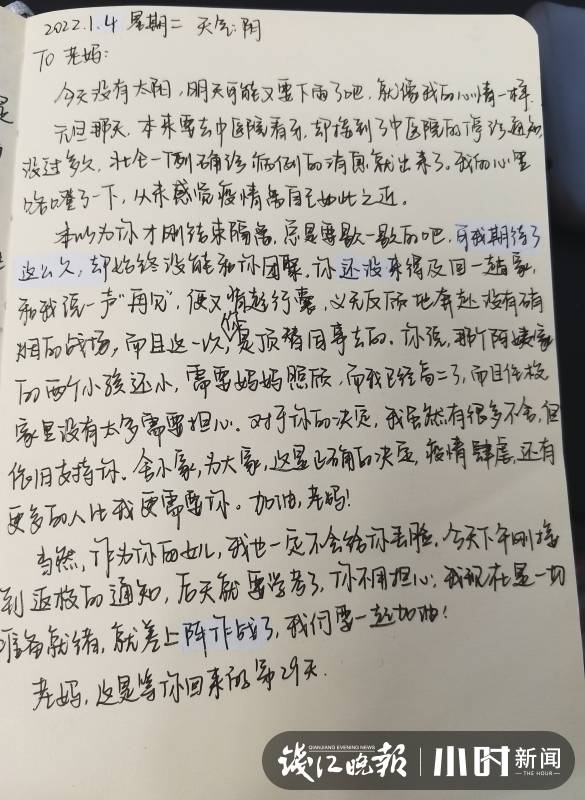 2022.1.4 星期二 天气:阴
To 老妈:
今天没有太阳,明天可能又要下雨了吧,就像我的心情一样.
元旦那天,本来要去中医院看牙,却接到了中医院的停诊通知,
没过多久,北仑一例确诊病例的消息就出来了。我的心里
咯噔了一下,从来感觉疫情离自己如此之近。
本以为你才刚结束隔离,总是要歇一歇的吧,可我期待了
这么久,却始终没能和你团聚。你还没来得及回一趟家,
和我说一声“再见”,便又背起行囊,义无反顾地奔赴没有硝
烟的战场,而且这一次,你是顶替同事去的。你说,那个阿姨家
的两个小孩还小,需要妈妈照顾,而我已经高二了,而且住校
家里没有太多需要担心。对于你的决定,我虽然有很多不舍,但
依旧支持你。舍小家,为大家,这是正确的决定,疫情肆虐,还有
更多的人比我更需要你。加油,老妈!
当然,作为你的女儿,我也一定不会给你丢脸。今天下午刚接
到返校的通知,后天就要学考了,你不用担心,我现在是一切
准备就绪,就差上阵作战了,我们要一起加油!
老妈,这是等你回来的第29天.
钱江晚报
QIANJIANG EVENING NEWS
小时新闻
THE HOUR